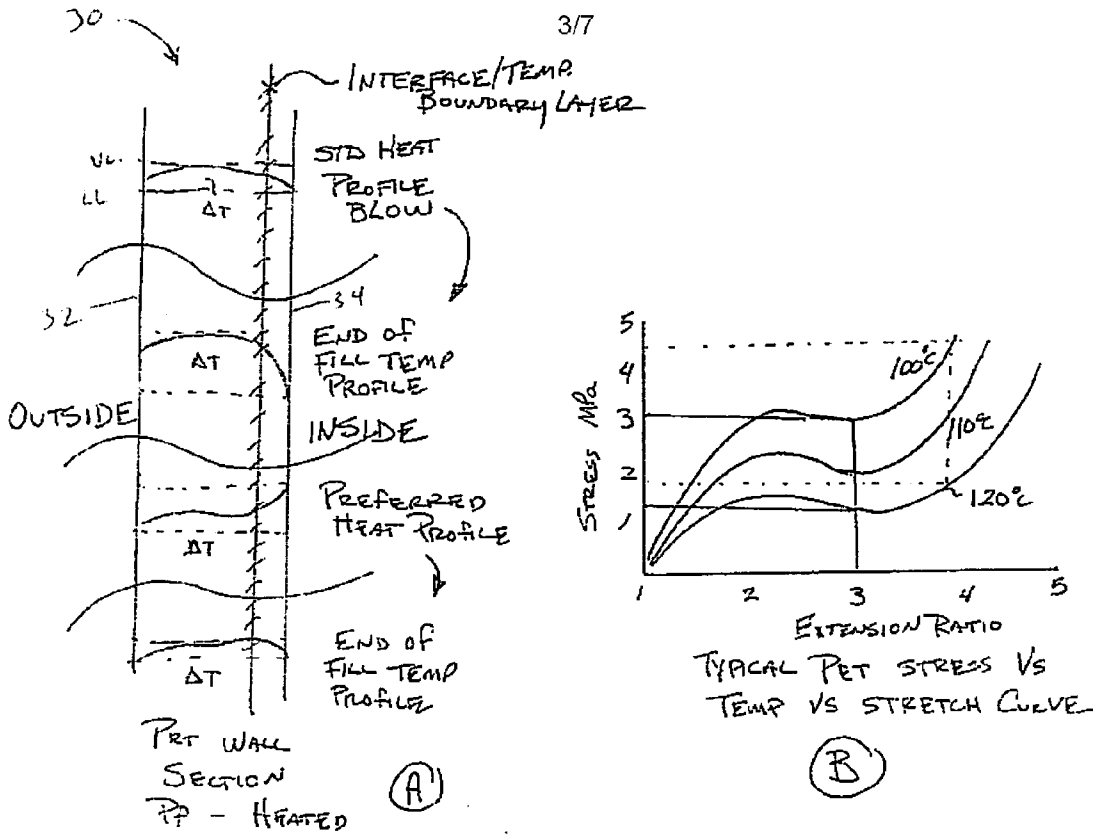 3/7
30
INTERFACE/TEMP.
BOUNDARY LAYER
UL.
LL
ΔT
STD HEAT
PROFILE
BLOW
32
34
ΔT
END OF
FILL TEMP
PROFILE
OUTSIDE
INSIDE
PREFERRED
HEAT PROFILE
ΔT
END OF
FILL TEMP
PROFILE
ΔT
PRT WALL
SECTION
PP - HEATED
A
5
4
3
2
1
STRESS MPa
100°C
110°C
120°C
1 2 3 4 5
EXTENSION RATIO
TYPICAL PET STRESS VS
TEMP VS STRETCH CURVE
B